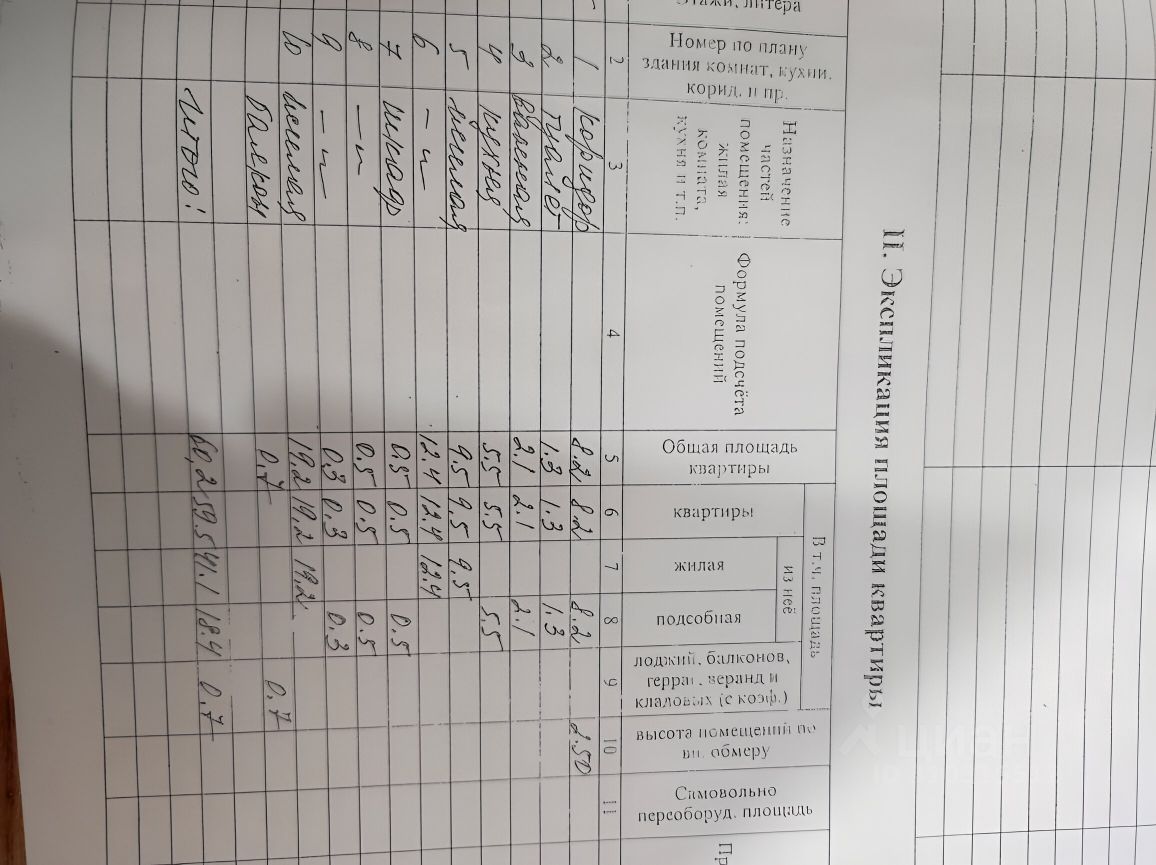 II. Экспликация площади квартиры
Этажи, литера
Номер по плану здания комнат, кухни, корид. и пр.
Назначение частей помещения: жилая комната, кухня и т.п.
Формула подсчёта помещений
Общая площадь квартиры
В т.ч. площадь
квартиры
из неё
жилая
подсобная
лоджий, балконов, террас, веранд и кладовых (с коэф.)
высота помещений по вн. обмеру
Самовольно переоборуд. площадь
Пр
2 3 4 5 6 7 8 9 10 11
1 Коридор 8.2 8.2 8.2 2.50
2 Туалет 1.3 1.3 1.3
3 Ванная 2.1 2.1 2.1
4 Кухня 5.5 5.5 5.5
5 Жилая 9.5 9.5 9.5
6 —"— 12.4 12.4 12.4
7 Шкаф 0.5 0.5 0.5
8 —"— 0.5 0.5 0.5
9 —"— 0.3 0.3 0.3
10 Жилая 19.2 19.2 19.2
Балкон 0.7 0.7
Итого: 60,2 59.5 41.1 18.4 0.7
циан